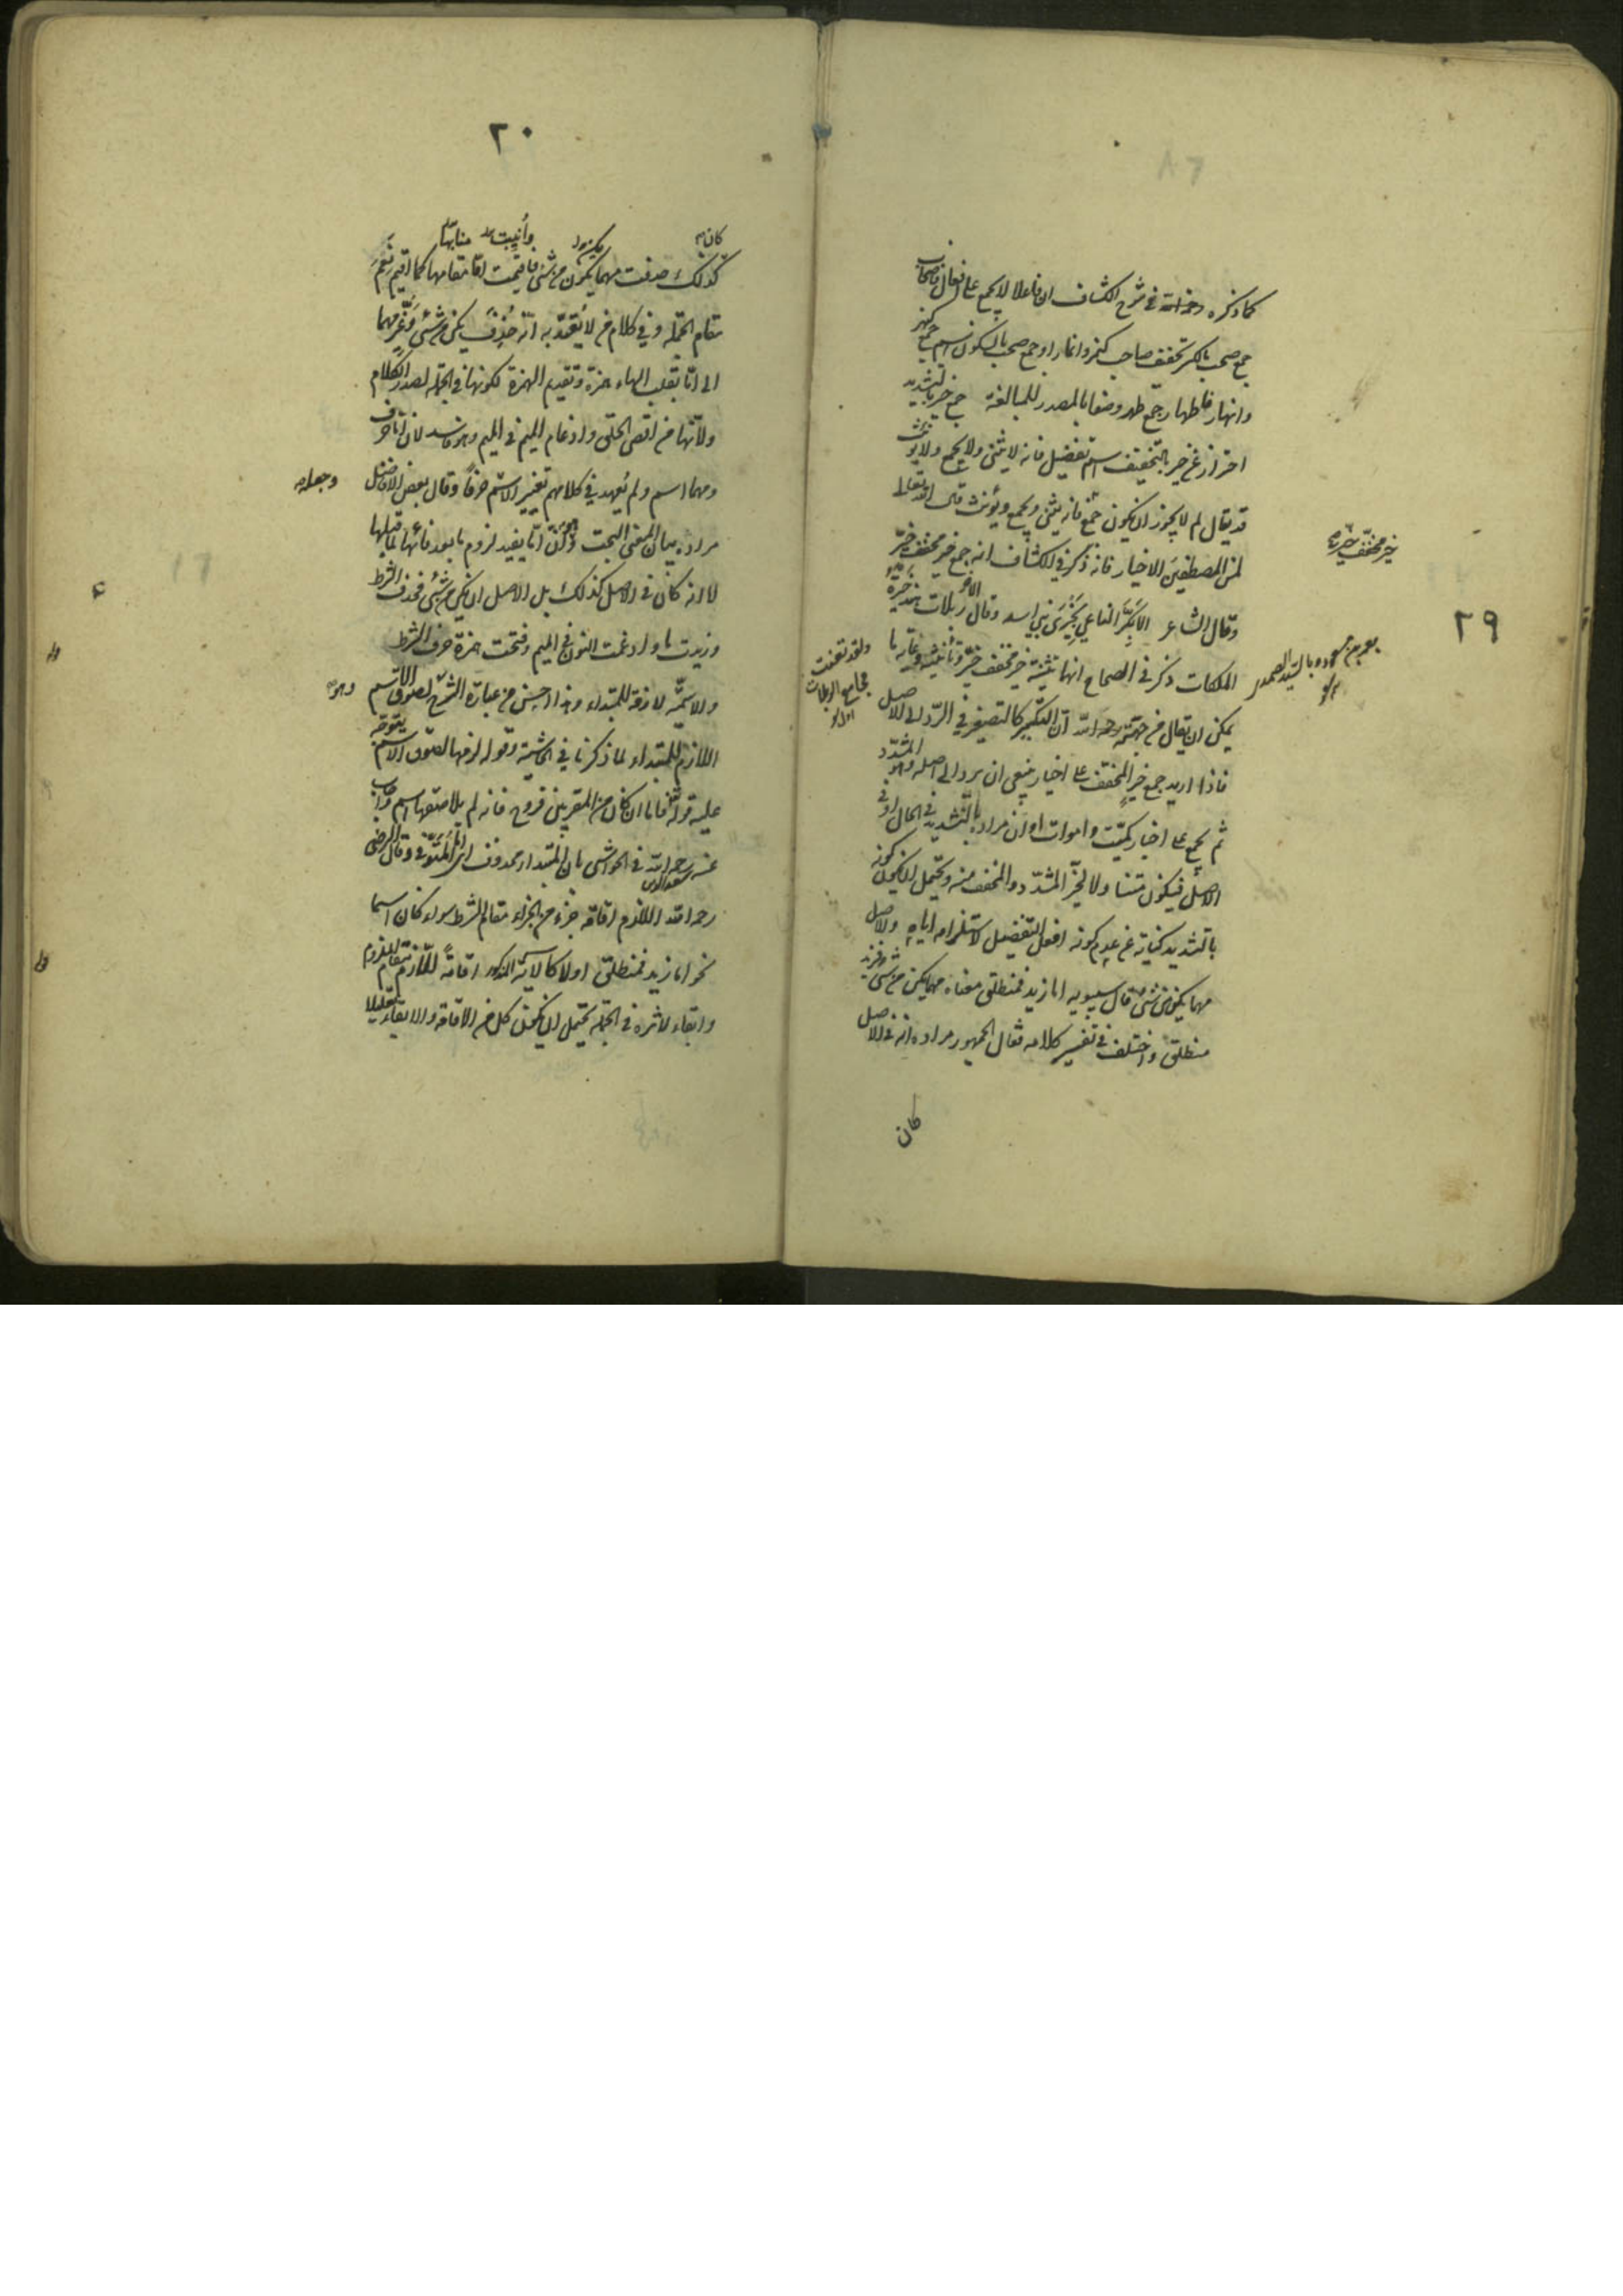 ٢٩
كما ذكره رحمه الله فى شرح الكشاف ان فاعلا لا يجمع على افعال فاصحاب
جمع صحب بالكسر تخفيف صاحب كنمر وانمار او جمع صحب بالسكون اسم جمع كنهر
وانهار فاطهار جمع طهر وصفا بالمصدر للمبالغة جمع خير بالتشديد
احتراز عن خير بالتخفيف اسم تفضيل فانه لا يثنى ولا يجمع ولا يؤنث
قد يقال لم لا يجوز ان يكون جمع فانه يثنى ويجمع ويؤنث قال الله تعالى
لمن المصطفين الاخيار فانه ذكر فى الكشاف انه جمع خير مخفف خيّر
وقال الشاعر الا بكر الناعى بخيرى بنى اسد وقال الآخر ربلات هند خيرة
الملكات ذكر فى الصحاح انها تثنية خير مخفف خيّر وتأنيثه
يمكن ان يقال من جهته رحمه الله ان التكسير كالتصغير فى الرد الى الاصل
فاذا اريد جمع خير المخفف على اخيار ينبغى ان يرد الى اصله وهو المشدد
ثم يجمع على اخيار كميّت واموات او ان مراده بالتشديد فى الحال او فى
الاصل فيكون متناولا لخير المشدد والمخفف منه ويحتمل ان يكون كونه
بالتشديد كناية عن عدم كونه افعل التفضيل لاستلزامه اياه والاصل
مهما يكن من شئ قال سيبويه اما زيد فمنطلق معناه مهما يكن من شئ فزيد
منطلق واختلف فى تفسير كلامه فقال الجمهور مراده انه فى الاصل
كان
خير مخفف خيّر
بعمرو بن مسعود وبالسيد الصمد
ولقد طعنت
مجامع الربلات
٢٠
كان
وأنيبت منابها
كذلك حذفت مهما يكون من شئ فاقيمت اما مقامها كما اقيم نعم
مقام الجملة وفى كلام من لا يُعتدّ به انه حُذف يكن من شئ وغُيّر مهما
الى امّا بقلب الهاء همزة وتقديم الهمزة لكونها فى الجملة لصدر الكلام
ولانها من اقصى الحلق وادغام الميم فى الميم وهو فاسد لان اما حرف
ومهما اسم ولم يُعهد فى كلامهم تغيير الاسم حرفاً وقال بعض الافاضل
وجعله
مراده بيان المعنى البحت وان اما يفيد لزوم ما بعد فائها لما قبلها
لا انه كان فى الاصل كذلك بل الاصل ان يكن من شئ فحذف الشرط
وزيدت ما وادغمت النون فى الميم وفتحت همزة حرف الشرط
والاسمية لازمة للمبتداء وهذا احسن من عبارة الشرح لصوق الاسم
وهو
اللازم للمبتداء لما ذكرنا فى الحاشية وقوله لزمها لصوق الاسم يتوجه
عليه قوله تعالى فاما ان كان من المقربين فروح فانه لم يلاصقها اسم واجاب
عنه رحمه الله فى الحواشى بان المبتداء محذوف اى اما المتوفى وقال الرضى
رحمه الله اللازم اقامة جزء من الجزاء مقام الشرط سواء كان اسما
نحو اما زيد فمنطلق اولا كالآية المذكورة اقامةً للّازم مقام الملزوم
وابقاء لاثره فى الجملة يحتمل ان يكون كل من الاقامة والابقاء تعليلا